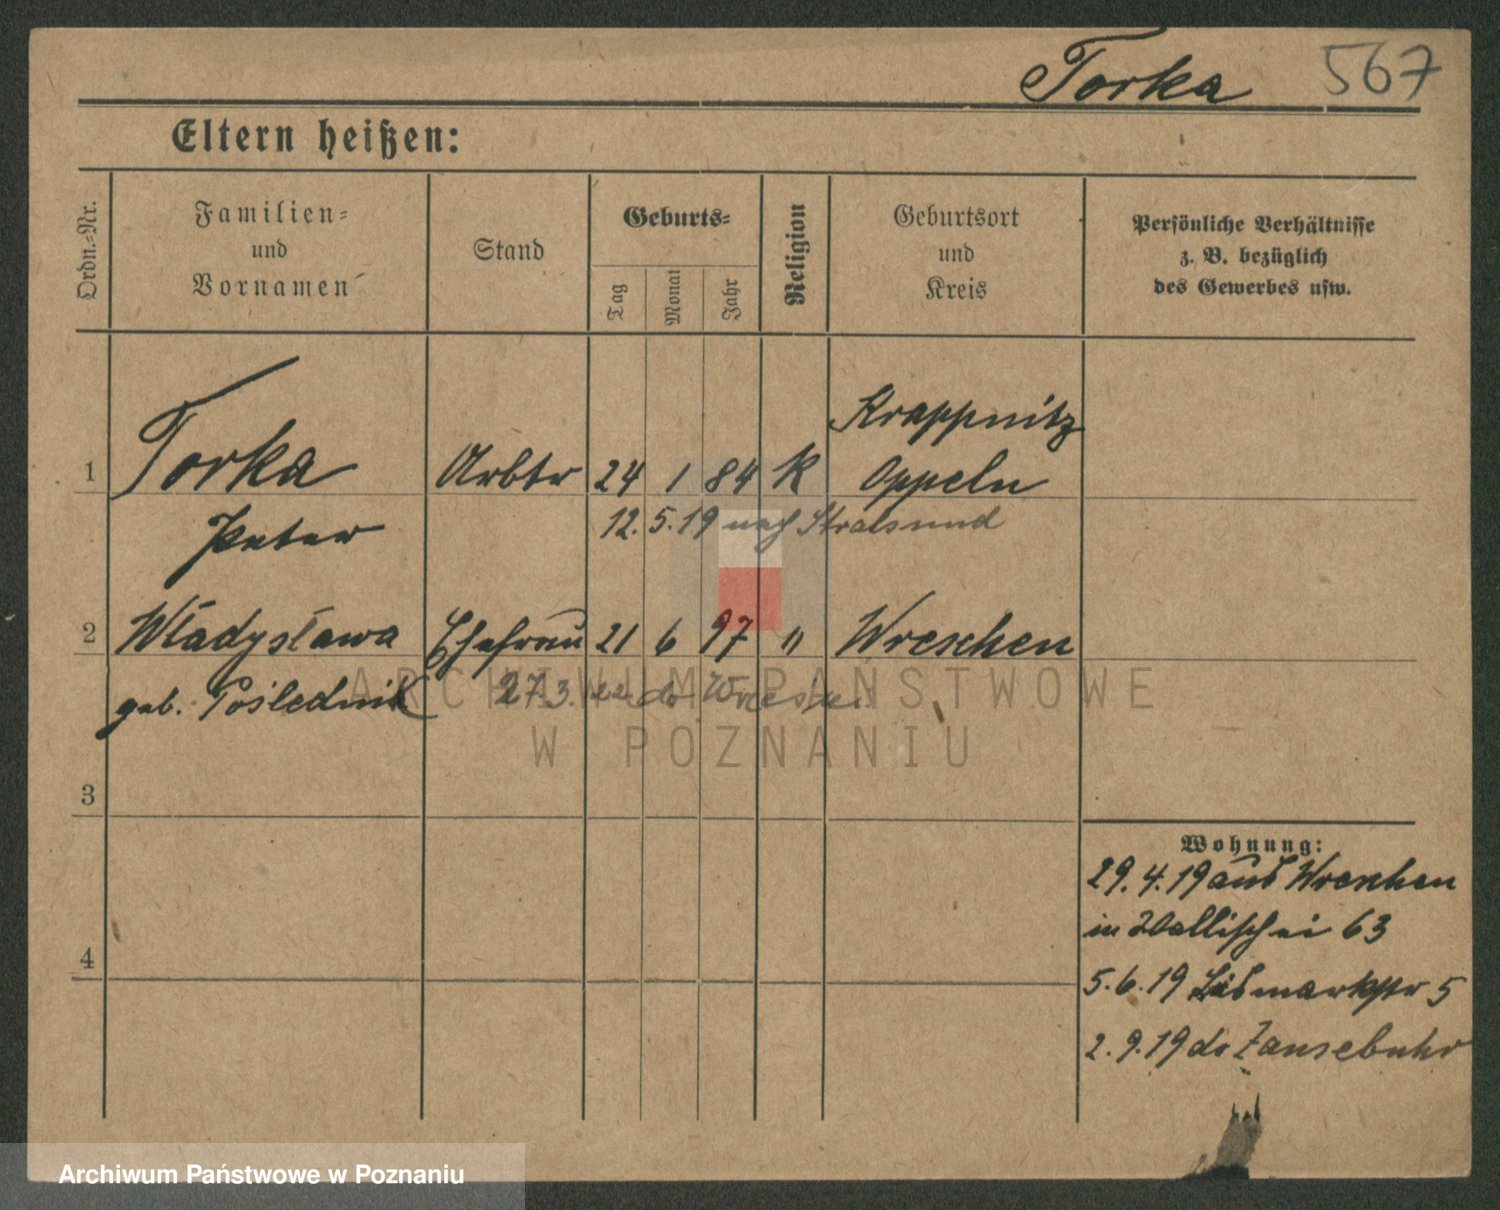 Torka 567
Eltern heißen:
Ordn.-Nr.
Familien-
und
Vornamen
Stand
Geburts-
Tag
Monat
Jahr
Religion
Geburtsort
und
Kreis
Persönliche Verhältnisse
z. B. bezüglich
des Gewerbes usw.
Krappnitz
1 Torka Arbtr 24 1 84 K Oppeln
Peter 12. 5. 19 nach Stralsund
2 Władysława Ehefrau 21 6 97 " Wreschen
geb. Poślednik 27. 3. 22 do
ARCHIWUM PAŃSTWOWE
W POZNANIU
3
Wohnung:
29. 4. 19 aus Wreschen
in Wallischei 63
4
5. 6. 19 5
2. 9. 19 do
Archiwum Państwowe w Poznaniu